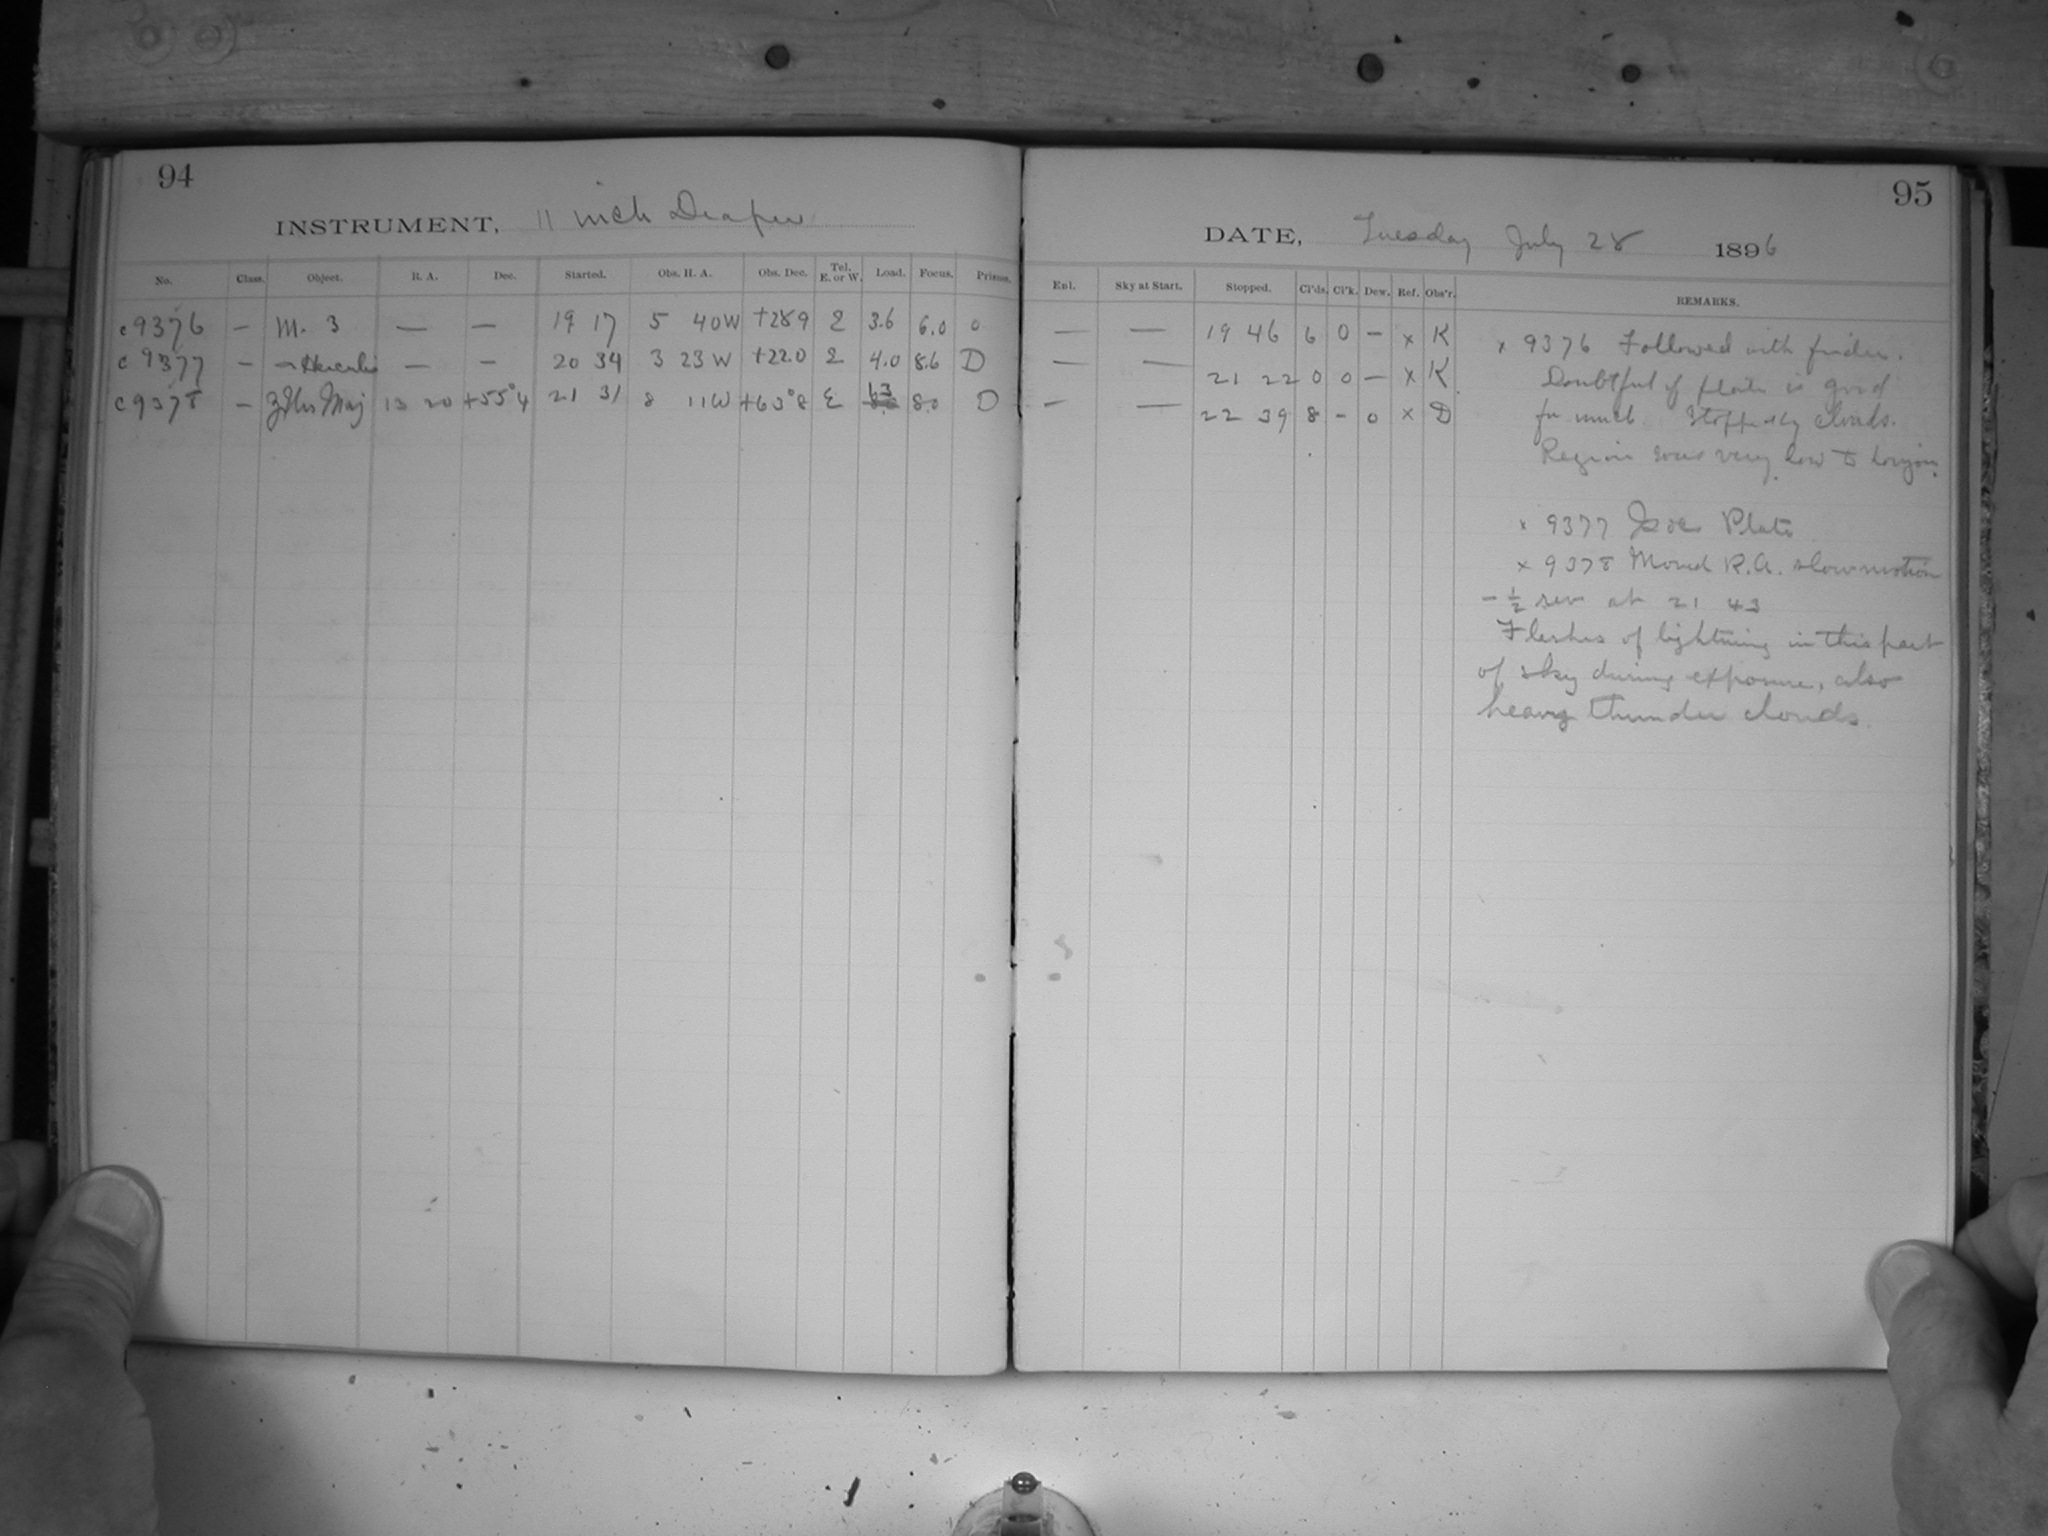 94
INSTRUMENT, 11 inch Draper
No. Class. Object. R. A. Dec. Started. Obs. H. A. Obs. Dec. Tel. E. or W. Load. Focus. Prisms.
c 9376 — M. 3 — — 19 17 5 40 W +28 9 E 3.6 6.0 0
c 9377 — Herculis — — 20 34 3 23 W +22.0 E 4.0 8.6 D
c 9378 — Maj 13 20 +55°4 21 31 8 11 W +63°8 E 8.0 D
95
DATE, Tuesday July 28 1896
Enl. Sky at Start. Stopped. Cl'ds. Cl'k. Dew. Ref. Obs'r. REMARKS.
— — 19 46 6 0 — x K
— — 21 22 0 0 — x K
— — 22 39 8 – 0 x D
x 9376 Followed with finder.
Doubtful if plate is good
for much. Stopped by clouds.
Region was very low to horizon.
x 9377 Plate
x 9378 Moved R.A. slow motion
– ½ at 21 43
Flashes of lightning in this part
of sky during exposure, also
heavy thunder clouds.